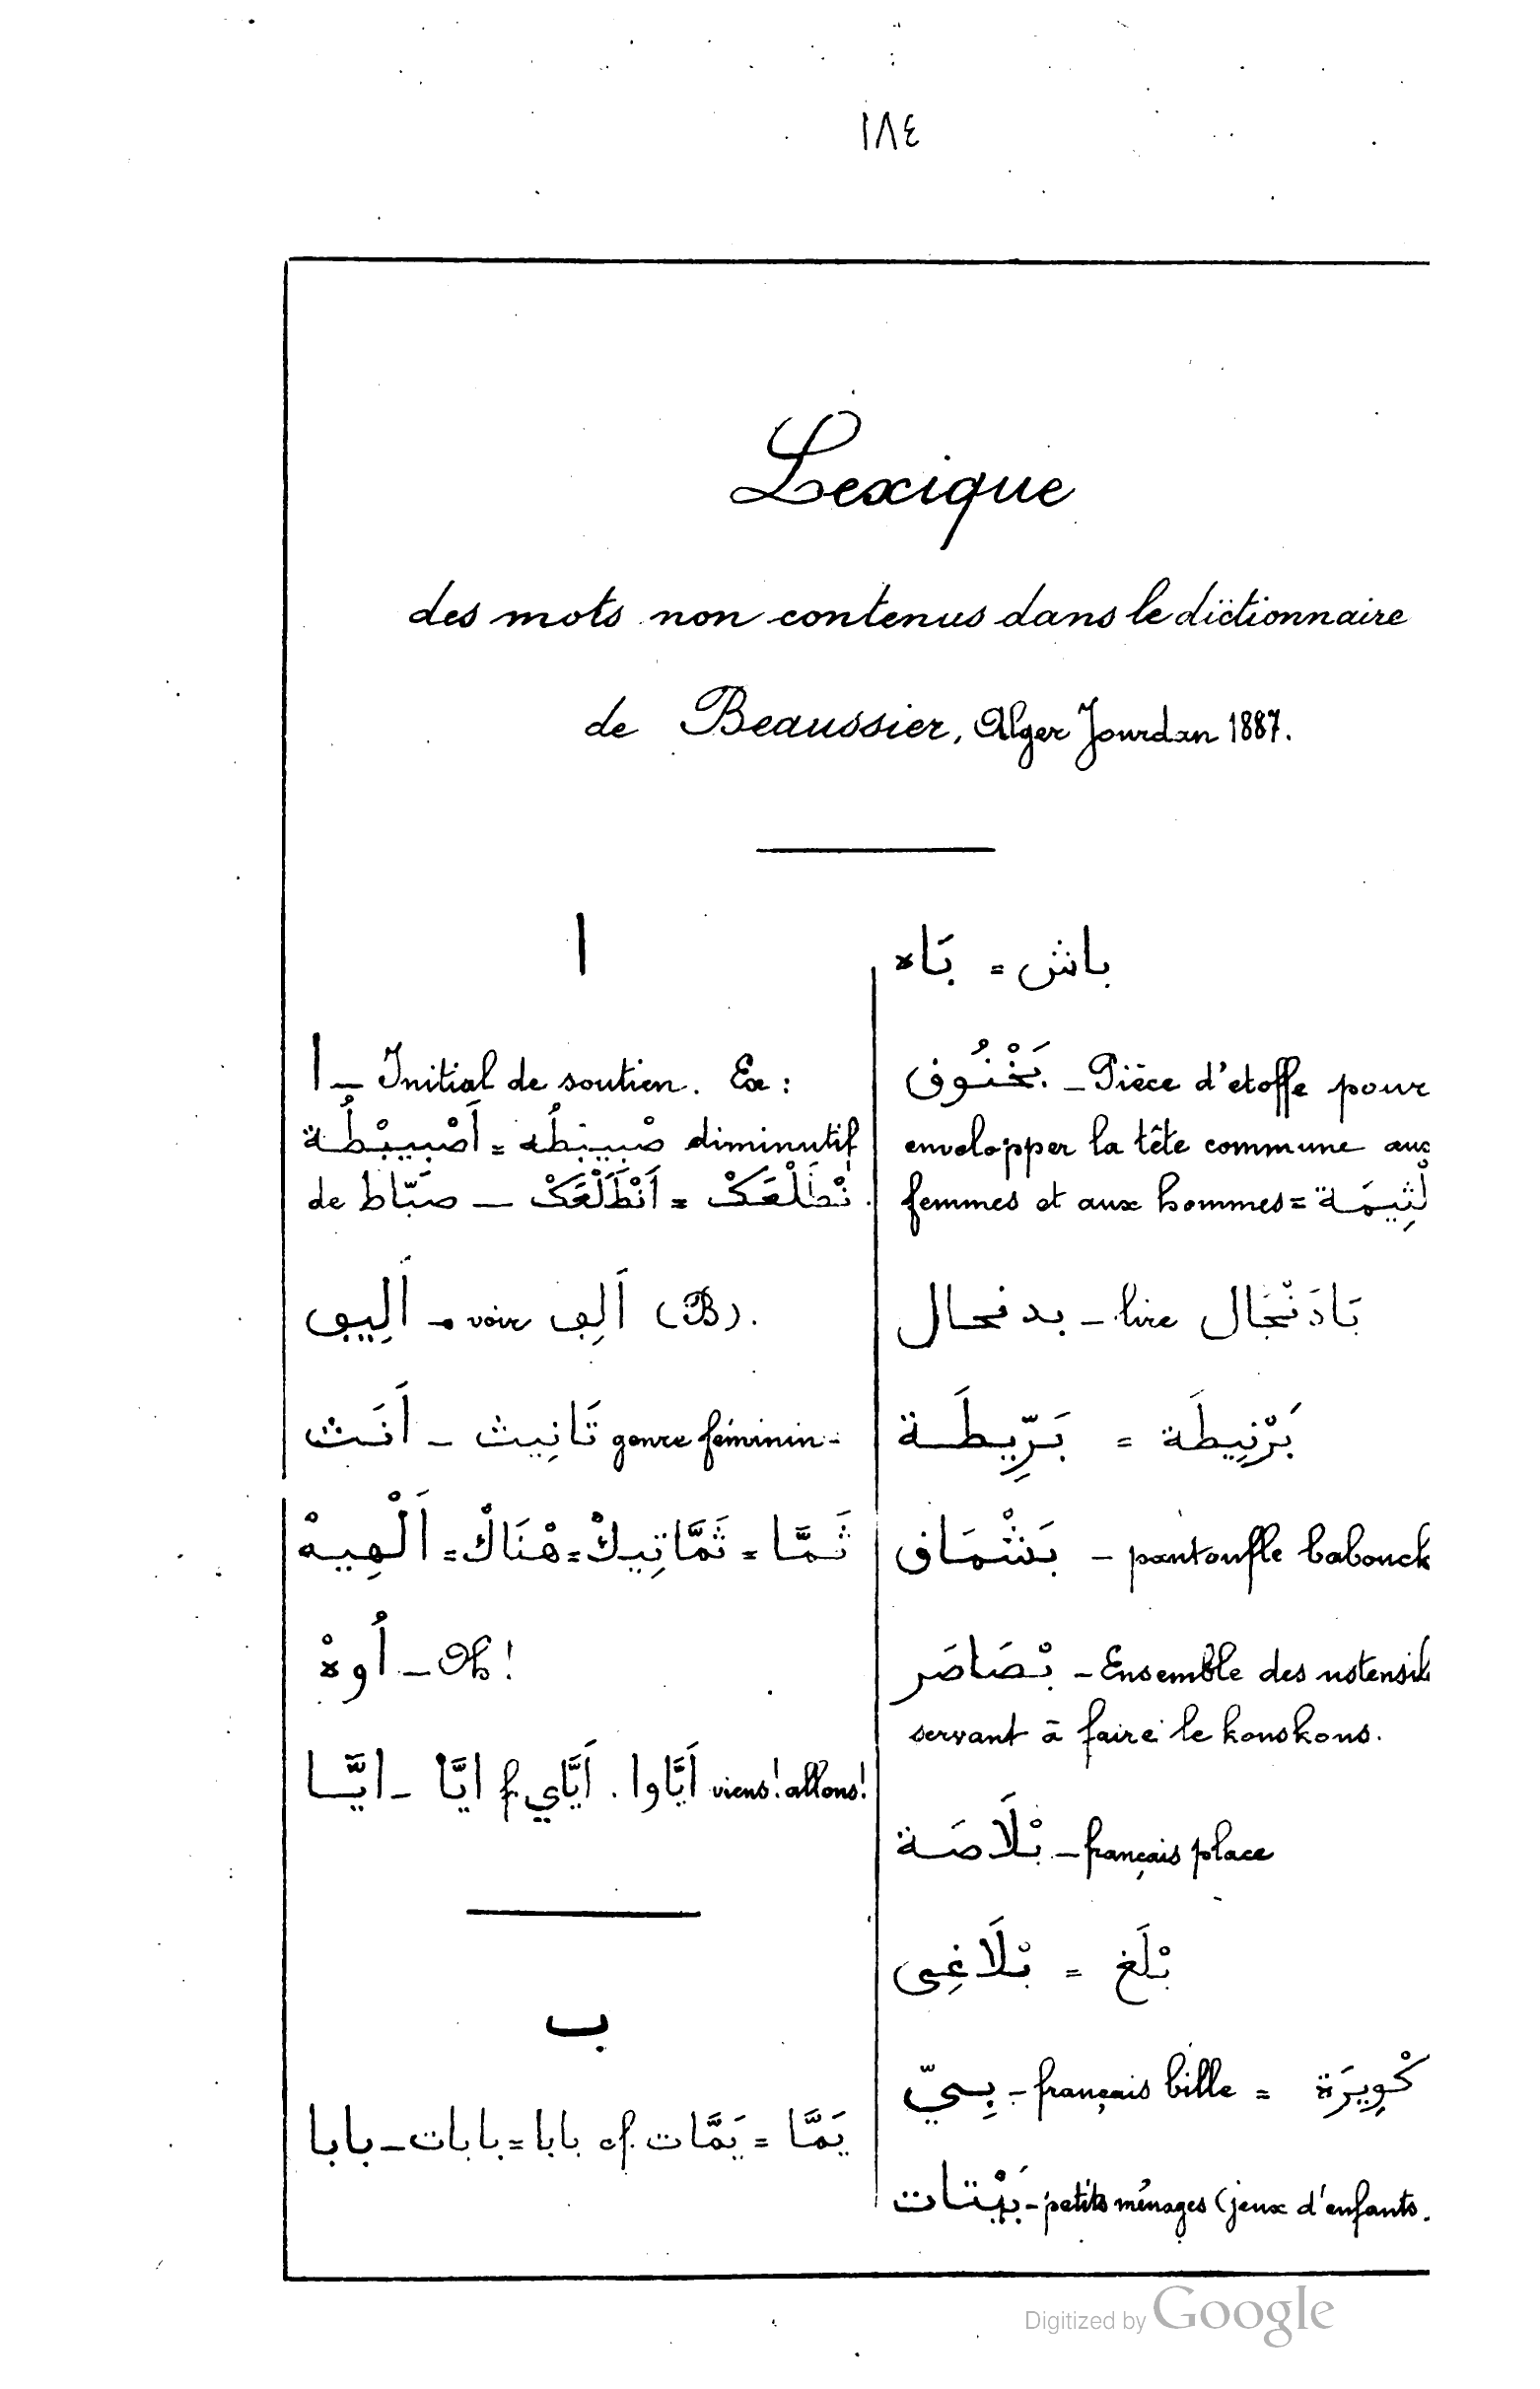 ١٨٤
Lexique
des mots non contenus dans le dictionnaire
de Beaussier, Alger Jourdan 1887.
ا
ا – Initial de soutien. Ex :
اَصْبِيبْطُة = صْبيبطُه diminutif
de صَبّاط – اَنْطَلْعَكْ = نْطَلْعَكْ.
اَلِيڢ – voir اَلِڢ (B).
اَنَث – تَانِيث genre féminin –
اَلْهِيهْ = هْنَاكْ = ثَمَّاتِيكْ = ثَمَّا
اُوهْ – Oh !
ايَّا – ايَّا f. اَيَّاي . اَيَّاوا viens ! allons !
ب
بابا – بابات = بابا cf. يَمَّات = يَمَّا
بَاه = باش
بَخْنُوف – Pièce d'étoffe pour
envelopper la tête commune aux
femmes et aux hommes = لْثِيمَة
بدنجال – lire بَادَنْجَال
بَرِّيطَة = بَرْنِيطَة
بَشْمَاف – pantoufle babouch
بْصَاصَر – Ensemble des ustensil
servant à faire le kouskous.
بْلَاصَة – français place
بْلَاغِي = بْلَغ
بِييّ – français bille = كْوِيرَة
بَيْتات – petits ménages (jeux d'enfants.
Digitized by Google